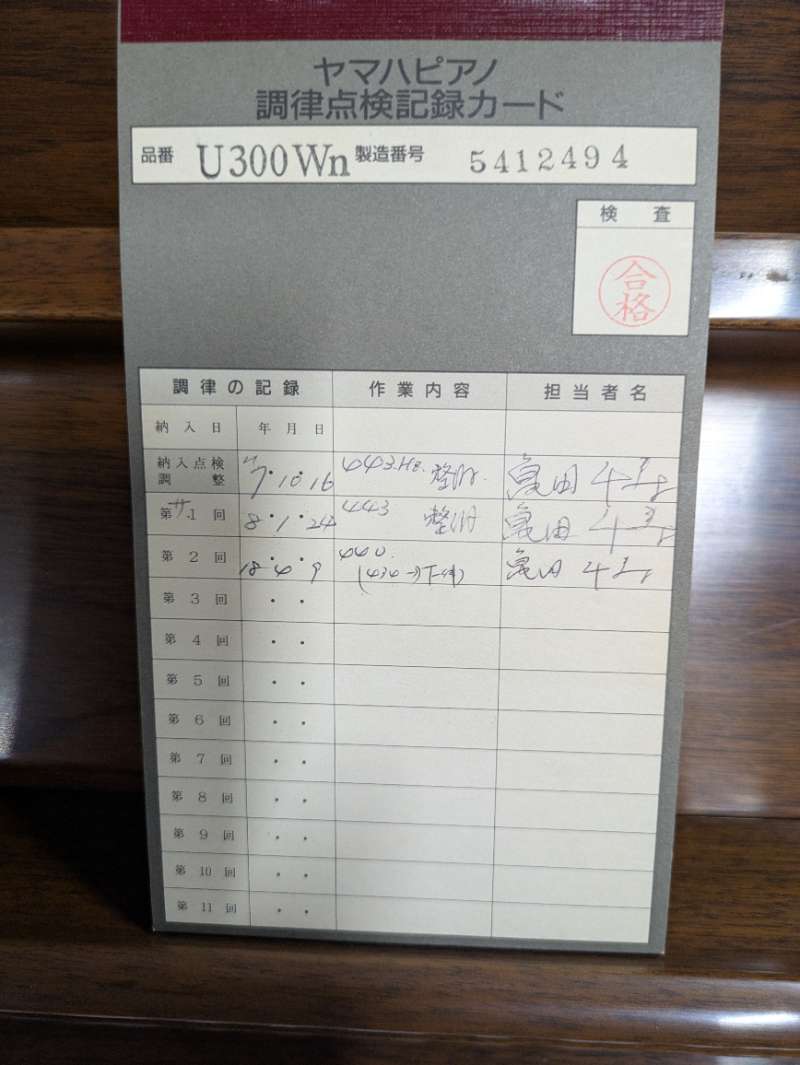 ヤマハピアノ
調律点検記録カード
品番 U300Wn 製造番号 5412494
検査
合格
調律の記録 作業内容 担当者名
納入日 年月日
納入点検調整 7・10・16 443Hz. 亀田
第1回 8・1・24 443 亀田
第2回 18・4・9 440. 亀田
第3回 ・・
第4回 ・・
第5回 ・・
第6回 ・・
第7回 ・・
第8回 ・・
第9回 ・・
第10回 ・・
第11回 ・・